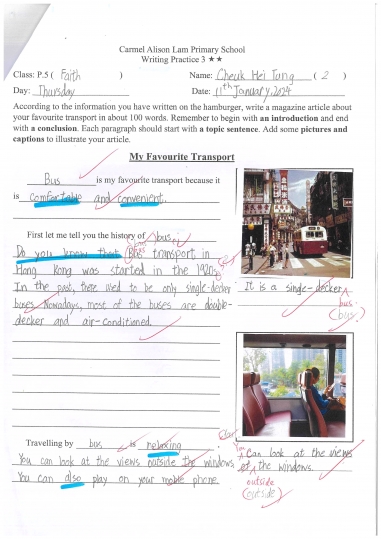 Carmel Alison Lam Primary School
Writing Practice 3 ★★
Class: P.5 ( Faith ) Name: Cheuk Hei Tung ( 2 )
Day: Thursday Date: 11th January, 2024
According to the information you have written on the hamburger, write a magazine article about
your favourite transport in about 100 words. Remember to begin with an introduction and end
with a conclusion. Each paragraph should start with a topic sentence. Add some pictures and
captions to illustrate your article.
My Favourite Transport
Bus is my favourite transport because it
is comfortable and convenient.
First let me tell you the history of bus.
Do you know that Bus transport in
Hong Kong was started in the 1920s.
In the past, there used to be only single-decker
buses. Nowadays, most of the buses are double-
decker and air-conditioned.
It is a single-decker
bus.
(bus.)
Travelling by bus is relaxing
You can look at the views outside the windows.
You can also play on your mobile phone.
You Can look at the views
the windows.
outside
(outside)